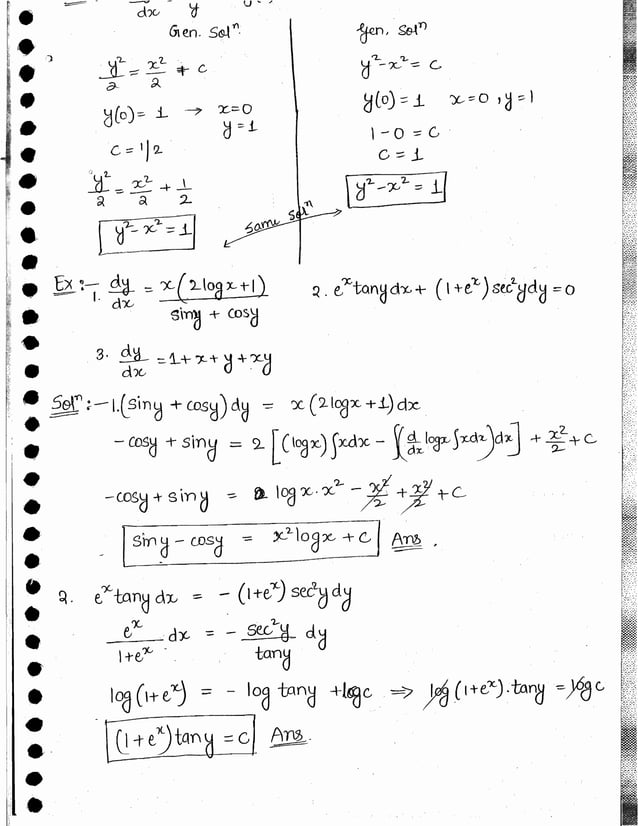 dy/dx = x/y
Gen. Solⁿ.
y²/2 = x²/2 + c
y(0) = 1 → x=0
y=1
c = 1/2
y²/2 = x²/2 + 1/2
y² - x² = 1
Gen. Solⁿ
y² - x² = c
y(0) = 1 x=0, y=1
1 - 0 = c
c = 1
y² - x² = 1
same solⁿ
Ex:- 1. dy/dx = x(2logx+1)/(siny + cosy) 2. eˣtanydx + (1+eˣ)sec²ydy=0
3. dy/dx = 1+x+y+xy
Solⁿ:- 1. (siny + cosy)dy = x(2logx+1)dx
-cosy + siny = 2[(logx)∫xdx - ∫(d/dx logx∫xdx)dx] + x²/2 + c
-cosy + siny = logx·x² - x²/2 + x²/2 + c
siny - cosy = x²logx + c Ans.
2. eˣtany dx = - (1+eˣ)sec²ydy
eˣ/(1+eˣ) dx = - sec²y/tany dy
log(1+eˣ) = - log tany + logc ⇒ log(1+eˣ).tany = logc
(1+eˣ)tany = c Ans.